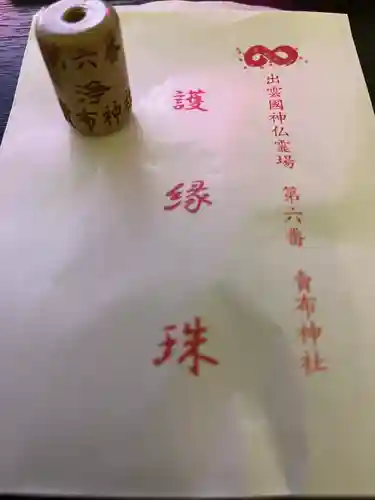 出雲國神仏霊場 第六番 賣布神社
護縁珠
六
浄
布神